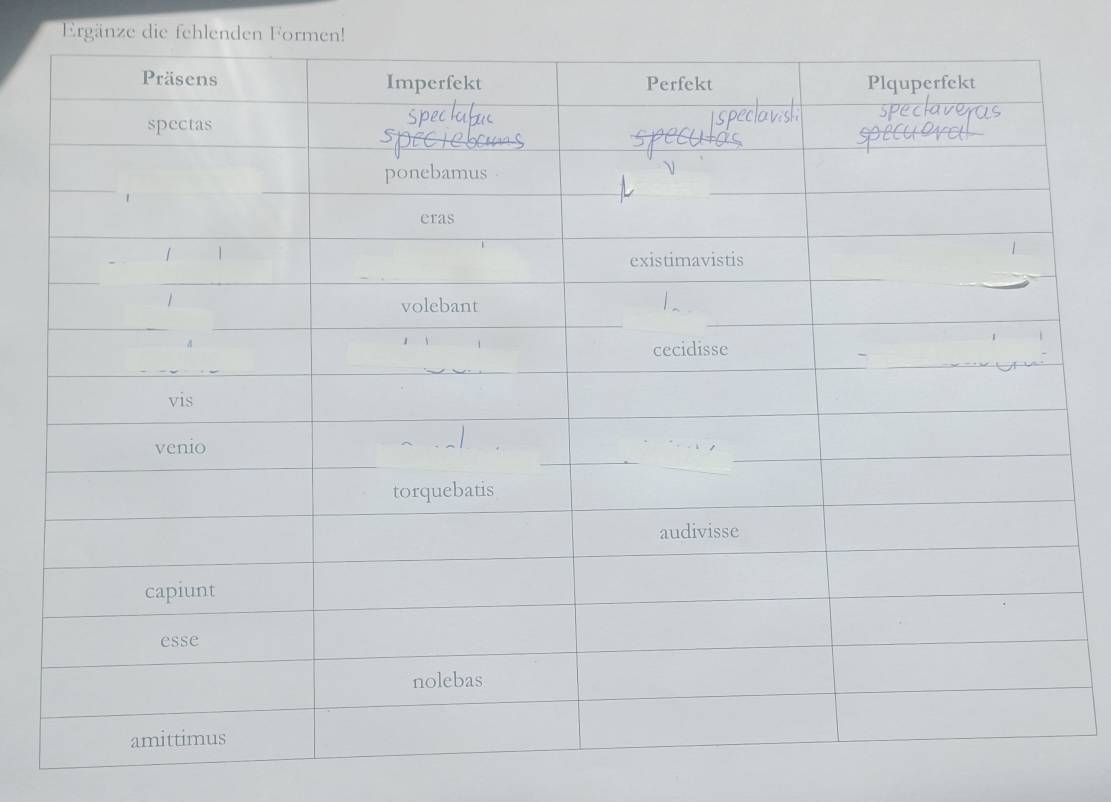 Ergänze die fehlenden Formen!
Präsens Imperfekt Perfekt Plquperfekt
spectas spectabas spectavisti spectaveras
ponebamus
eras
existimavistis
volebant
cecidisse
vis
venio
torquebatis
audivisse
capiunt
esse
nolebas
amittimus